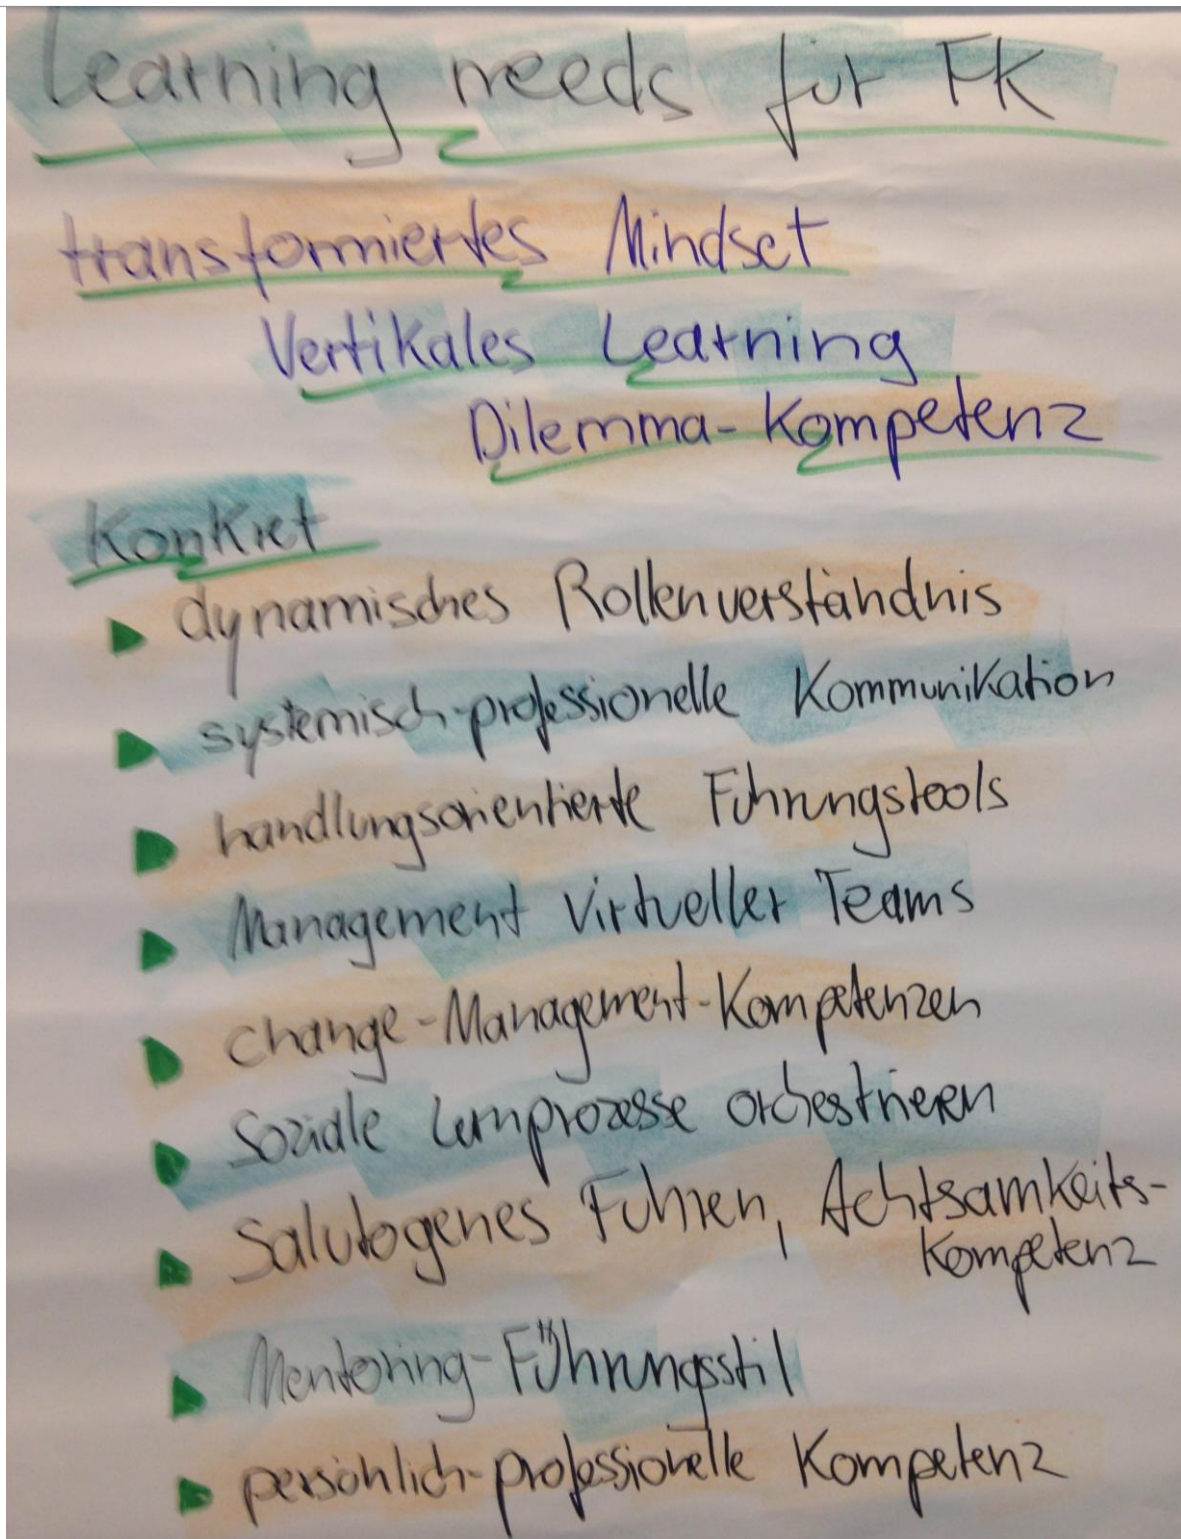 Learning needs für FK
transformiertes Mindset
Vertikales Learning
Dilemma-Kompetenz
Konkret
dynamisches Rollenverständnis
systemisch-professionelle Kommunikation
handlungsorientierte Führungstools
Management virtueller Teams
Change-Management-Kompetenzen
Soziale Lernprozesse orchestrieren
Salutogenes Führen, Achtsamkeits-
Kompetenz
Mentoring-Führungsstil
persönlich-professionelle Kompetenz